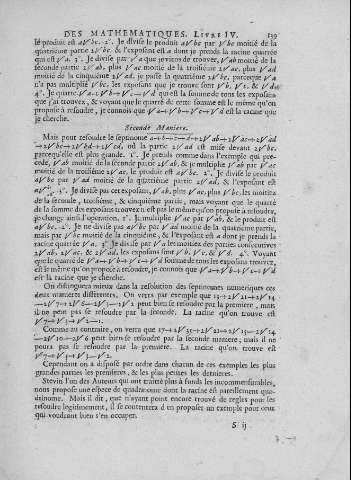 DES MATHEMATIQUES. LIVRE IV. 139
le produit est a√bc. 2°. Je divise le produit a√bc par √bc moitié de la
quatriéme partie 2√bc, & l'exposant est a dont je prends la racine quarrée
qui est √a. 3°. Je divise par √a que je viens de trouver, √ab moitié de la
seconde partie 2√ab, plus √ac moitié de la troisiéme 2√ac, plus √ad
moitié de la cinquiéme 2√ad, je passe la quatriéme 2√bc, parceque √a
n'a pas multiplié √bc. Les exposans que je trouve sont √b, √c, & √d
4°. Je quarre √a √b √c √d qui est la somme de tous les exposans
que j'ai trouvez, & voyant que le quarré de cette somme est le même qu'on
propose à resoudre, je connois que √a √b √c √d est la racine que
je cherche.
Seconde Maniere.
Mais pour resoudre le septinome
parcequ'elle est plus grande. 1°. Je prends comme dans l'exemple qui pre-
cede, √ab moitié de la seconde partie 2√ab, & je multiplie √ab par √ac
moitié de la troisiéme 2√ac, le produit est a√bc. 2°. Je divise le produit
a√bc par √ad moitié de la quatriéme partie 2√ad, & l'exposant est
3°. Je divise par cet exposant, √ab, plus √ac, plus √bc, les moitiés
de la seconde, troisiéme, & cinquiéme partie, mais voyant que le quarré
de la somme des exposans trouvez n'est pas le même qu'on propose à resoudre,
je change ainsi l'operation. 1°. Je multiplie √ab par √ac & le produit est
a√bc. 2°. Je ne divise pas a√bc par √ad moitié de la quatriéme partie,
mais par √bc moitié de la cinquiéme, & l'exposant est a dont je prends la
racine quarrée √a. 3°. Je divise par √a les moitiés des parties consecutives
2√ab, 2√ac, & 2√ad, les exposans sont √b, √c, & √d. 4°. Voyant
que le quarré de √a √b √c √d somme de tous les exposans trouvez,
est le même qu'on propose à resoudre, je connois que √a √b √c √d
est la racine que je cherche.
On distinguera mieux dans la resolution des septinomes numeriques ces
deux manieres differentes. On verra par exemple que
peut bien se resoudre par la premiere, mais
il ne peut pas se resoudre par la seconde. La racine qu'on trouve est

Comme au contraire, on verra que
peut bien se resoudre par la seconde maniere, mais il ne
pourra pas se resoudre par la premiere. La racine qu'on trouve est

Cependant on a disposé par ordre dans chacun de ces exemples les plus
grandes parties les premieres, & les plus petites les dernieres.
Stevin l'un des Auteurs qui ont traité plus à fonds les incommensurables,
nous propose une espece de quadrinome dont la racine est pareillement qua-
drinome. Mais il dit, que n'ayant point encore trouvé de regles pour les
resoudre legitimement, il se contentera d'en proposer un exemple pour ceux
qui voudront bien s'en occuper.
S ij